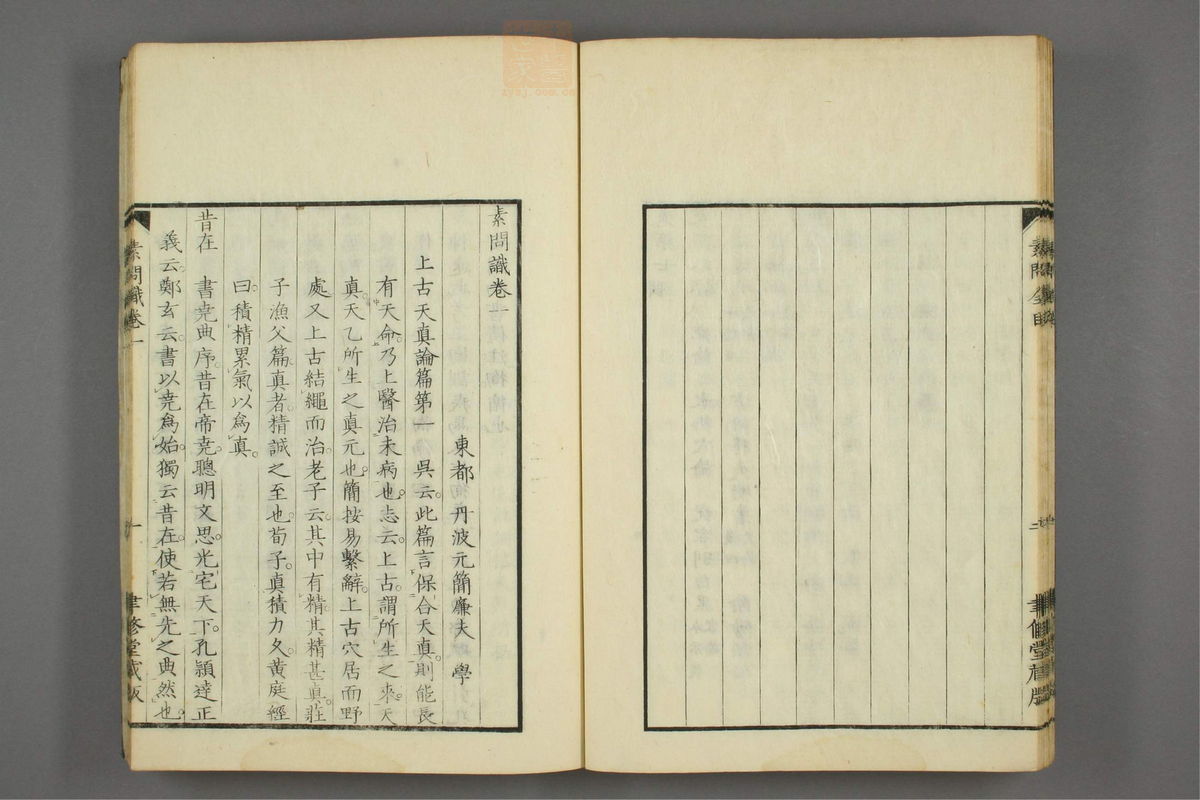 素問識卷一
東都 丹波元簡廉夫 學
上古天真論篇第一 吳云。此篇言保合天真。則能長
有天命。乃上醫治未病也。志云。上古。謂所生之來。天
真。天乙所生之真元也。簡按易繫辭。上古穴居而野
處。又上古結繩而治。老子云。其中有精。其精甚真。莊
子漁父篇。真者。精誠之至也。荀子。真積力久。黃庭經
曰。積精累氣以為真。
昔在 書堯典序。昔在帝堯。聰明文思。光宅天下。孔穎達正
義云。鄭玄云。書以堯為始。獨云昔在。使若無先之典然也。
素問識卷一
一
聿修堂藏版
素問全目
聿修堂藏版
zysj.com.cn